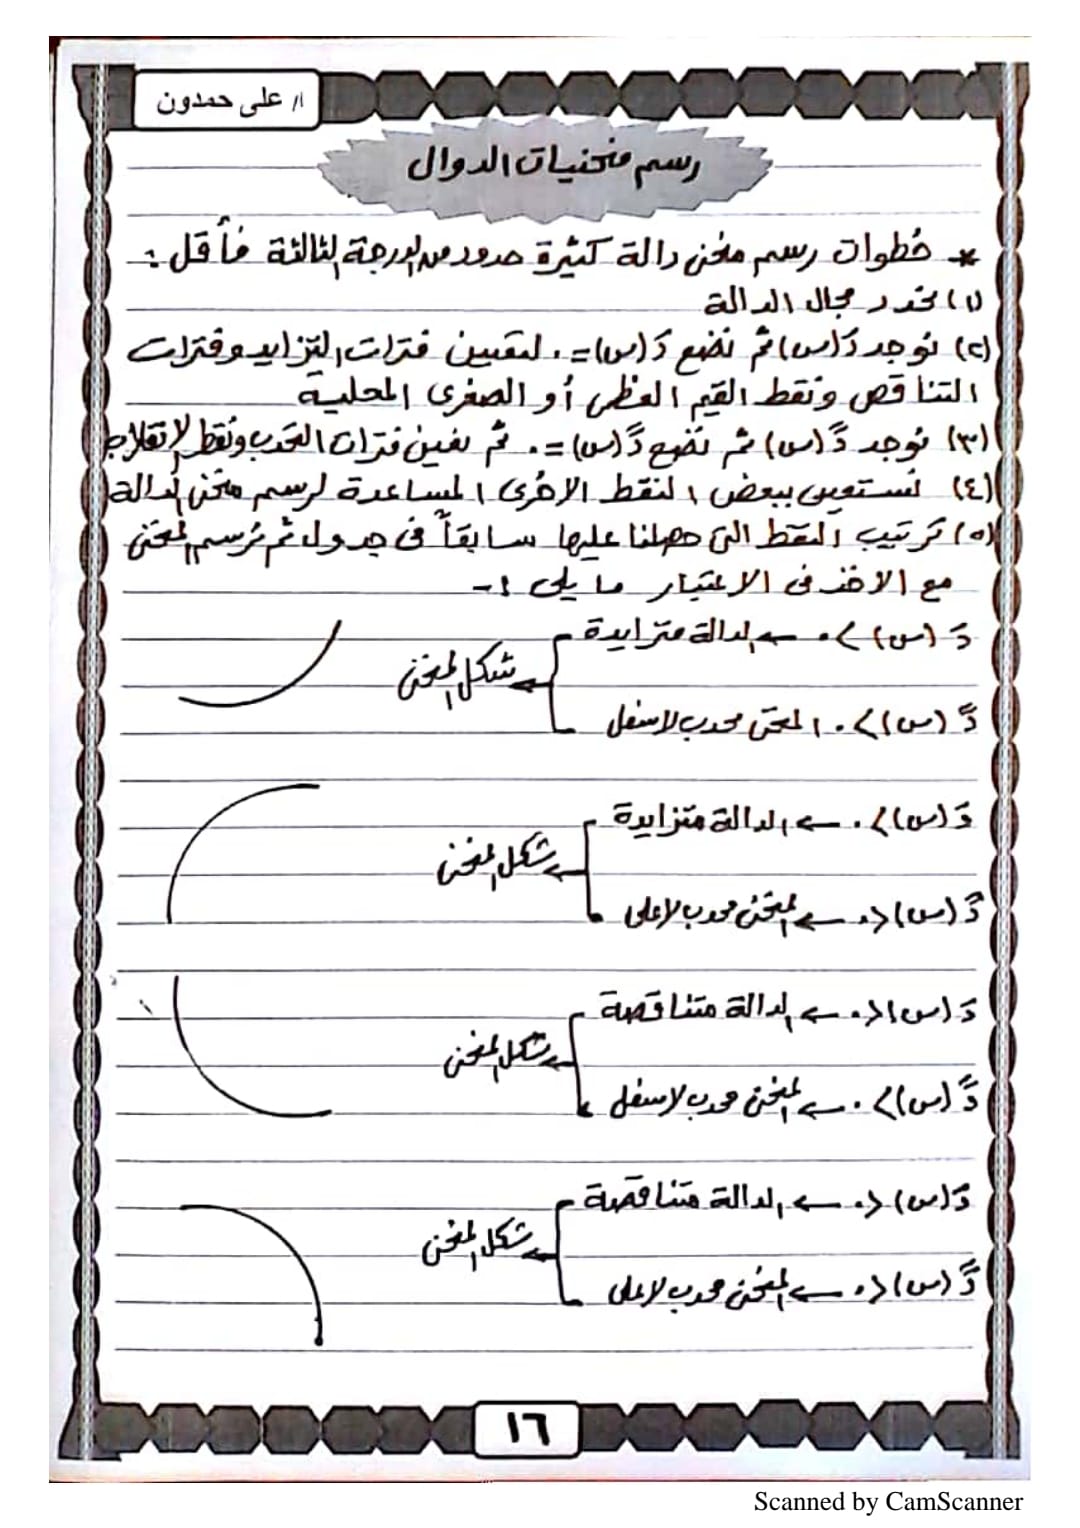 ا/ على حمدون
رسم منحنيات الدوال
* خطوات رسم منحنى دالة كثيرة حدود من الدرجة الثالثة فأقل :
(١) نحدد مجال الدالة
(٢) نوجد دَ(س) ثم نضع دَ(س) = ٠ لتعيين فترات التزايد وفترات
التناقص ونقط القيم العظمى أو الصغرى المحلية
(٣) نوجد دً(س) ثم نضع دً(س) = ٠ ثم نعين فترات التحدب ونقط الانقلاب
(٤) نستعين ببعض النقط الاخرى المساعدة لرسم منحنى الدالة
(٥) ترتيب النقط التى حصلنا عليها سابقاً فى جدول ثم نرسم المنحنى
مع الاخذ فى الاعتبار ما يلى :-
دَ(س) > ٠ ← الدالة متزايدة
شكل المنحنى
دً(س) > ٠ المنحنى محدب لاسفل
دَ(س) > ٠ ← الدالة متزايدة
شكل المنحنى
دً(س) < ٠ ← المنحنى محدب لاعلى
دَ(س) < ٠ ← الدالة متناقصة
شكل المنحنى
دً(س) > ٠ ← المنحنى محدب لاسفل
دَ(س) < ٠ ← الدالة متناقصة
شكل المنحنى
دً(س) < ٠ ← المنحنى محدب لاعلى
١٦
Scanned by CamScanner